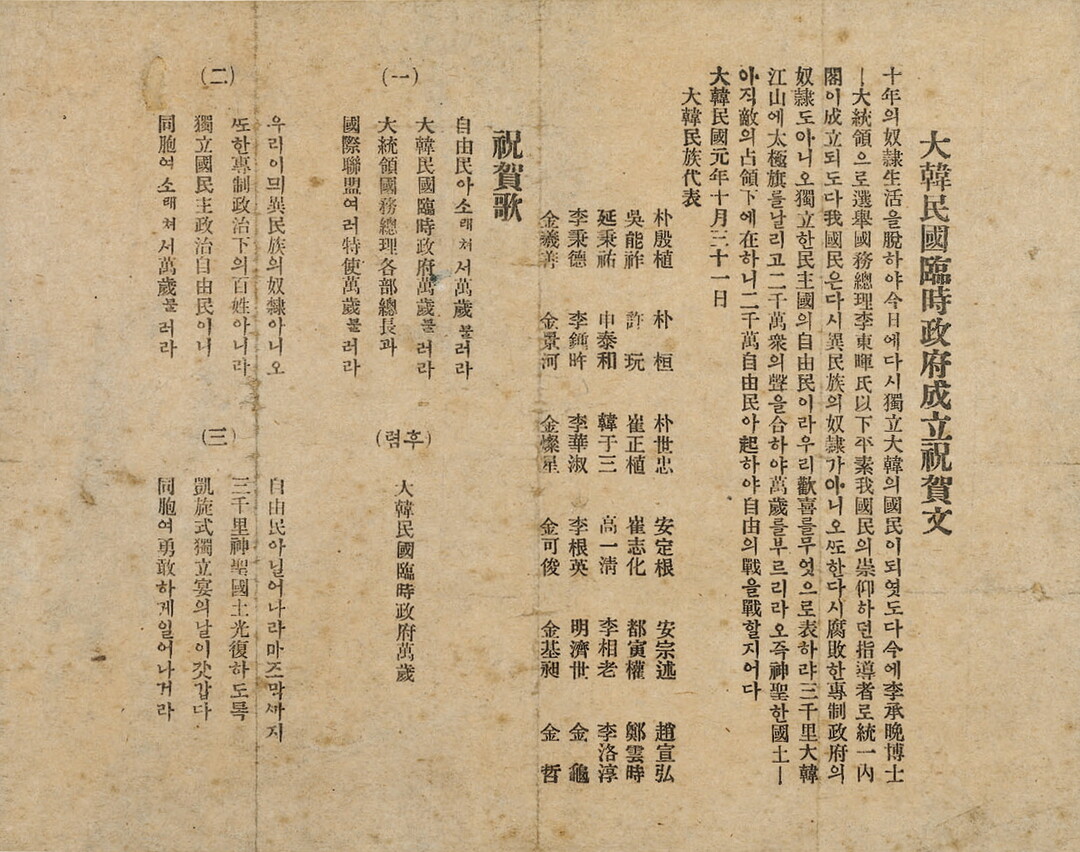 大韓民國臨時政府成立祝賀文
十年의奴隷生活을脫하야今日에다시獨立大韓의國民이되엿도다今에李承晩博士
ㅣ大統領으로選擧國務總理李東暉氏以下平素我國民의崇仰하던指導者로統一內
閣이成立되도다我國民은다시異民族의奴隷가아니오ᄯᅩ한다시腐敗한專制政府의
奴隷도아니오獨立한民主國의自由民이라우리歡喜를무엇으로表하랴三千里大韓
江山에太極旗를날리고二千萬衆의聲을合하야萬歲를부르리라오즉神聖한國土ㅣ
아직敵의占領下에在하니二千萬自由民아起하야自由의戰을戰할지어다
大韓民國元年十月三十一日
大韓民族代表
朴殷植 朴桓 朴世忠 安定根 安宗述 趙宣弘
吳能祚 許玩 崔正植 崔志化 都寅權 鄭雲時
延秉祐 申泰和 韓于三 高一淸 李相老 李洛淳
李秉德 李鍾旿 李華淑 李根英 明濟世 金龜
金羲善 金景河 金燦星 金可俊 金基昶 金哲
祝賀歌
(一)
自由民아소래쳐서萬歲불러라
大韓民國臨時政府萬歲불러라
大統領國務總理各部總長과
國際聯盟여러特使萬歲불러라
(후렴)
大韓民國臨時政府萬歲
(二)
우리이믜異民族의奴隷아니오
ᄯᅩ한專制政治下의百姓아니라
獨立國民主政治自由民이니
同胞여소래쳐서萬歲불러라
(三)
自由民아닐어나라마즈막ᄭᅡ지
三千里神聖國土光復하도록
凱旋式獨立宴의날이갓갑다
同胞여勇敢하게일어나거라